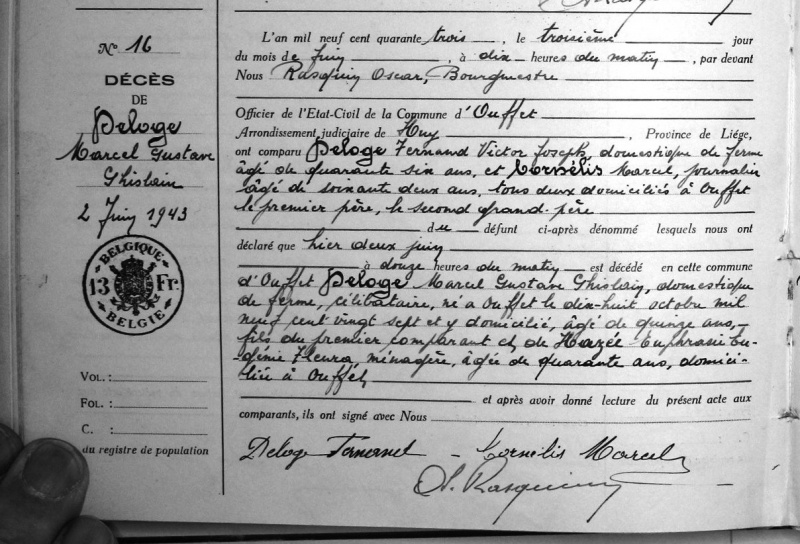 N° 16
DÉCÈS
DE
Deloge
Marcel Gustave
Ghislain
2 Juin 1943
BELGIQUE
13 Fr.
BELGIE
VOL. :
FOL. :
C. :
du registre de population
L'an mil neuf cent quarante trois, le troisième jour
du mois de Juin, à dix heures du matin, par devant
Nous Rasquin Oscar, Bourgmestre
Officier de l'Etat-Civil de la Commune d'Ouffet
Arrondissement judiciaire de Huy, Province de Liége,
ont comparu Deloge Fernand Victor Joseph, domestique de ferme
âgé de quarante six ans, et Cornélis Marcel, journalier
âgé de soixante deux ans, tous deux domiciliés à Ouffet
le premier père, le second grand-père
du défunt ci-après dénommé lesquels nous ont
déclaré que hier deux juin
à douze heures du matin est décédé en cette commune
d'Ouffet Deloge Marcel Gustave Ghislain, domestique
de ferme, célibataire, né à Ouffet le dix-huit octobre mil
neuf cent vingt sept et y domicilié, âgé de quinze ans,
fils du premier comparant et de Hazée Euphrasie Eu-
-génie Fleura, ménagère, âgée de quarante ans, domici-
liée à Ouffet,
et après avoir donné lecture du présent acte aux
comparants, ils ont signé avec Nous
Deloge Fernand - Kornélis Marcel
O. Rasquin